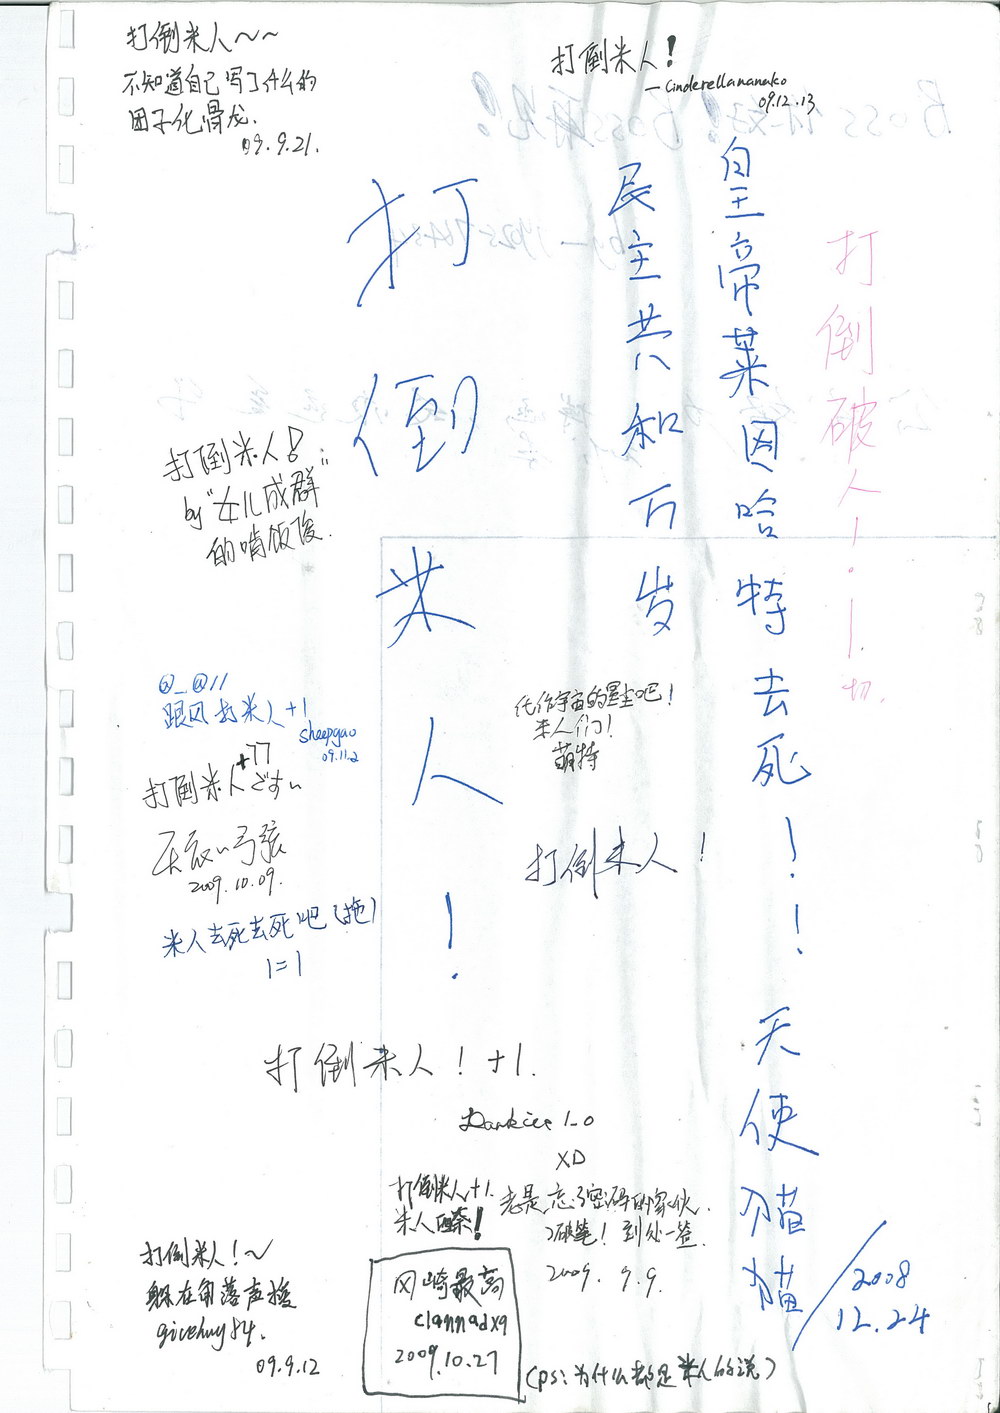 打倒米人～～
不知道自己写了什么的
团子化骨龙.
09.9.21.
打倒米人！
—Cinderellananako
09.12.13
打倒破人！.一切.
皇帝莱因哈特去死！！天使猫猫
2008
12.24
民主共和万岁
打倒米人！
打倒米人！
by "女儿成群"
的啃饭俊.
@_@//
跟风打米人+1
sheepgao
09.11.2
+77
打倒米人ですぃ
天辰い弓弦
2009.10.09.
米人去死去死吧(拖)
1=1
化作宇宙的星尘吧！
米人们！
萌特
打倒米人！
打倒米人！+1.
1_0
XD
老是忘了密码的家伙.
破笔！到处签.
2009. 9.9.
打倒米人+1.
米人！
冈崎最高
clannadxq
2009.10.27
(ps:为什么都是米人的说)
打倒米人！～
躲在角落声援
09.9.12